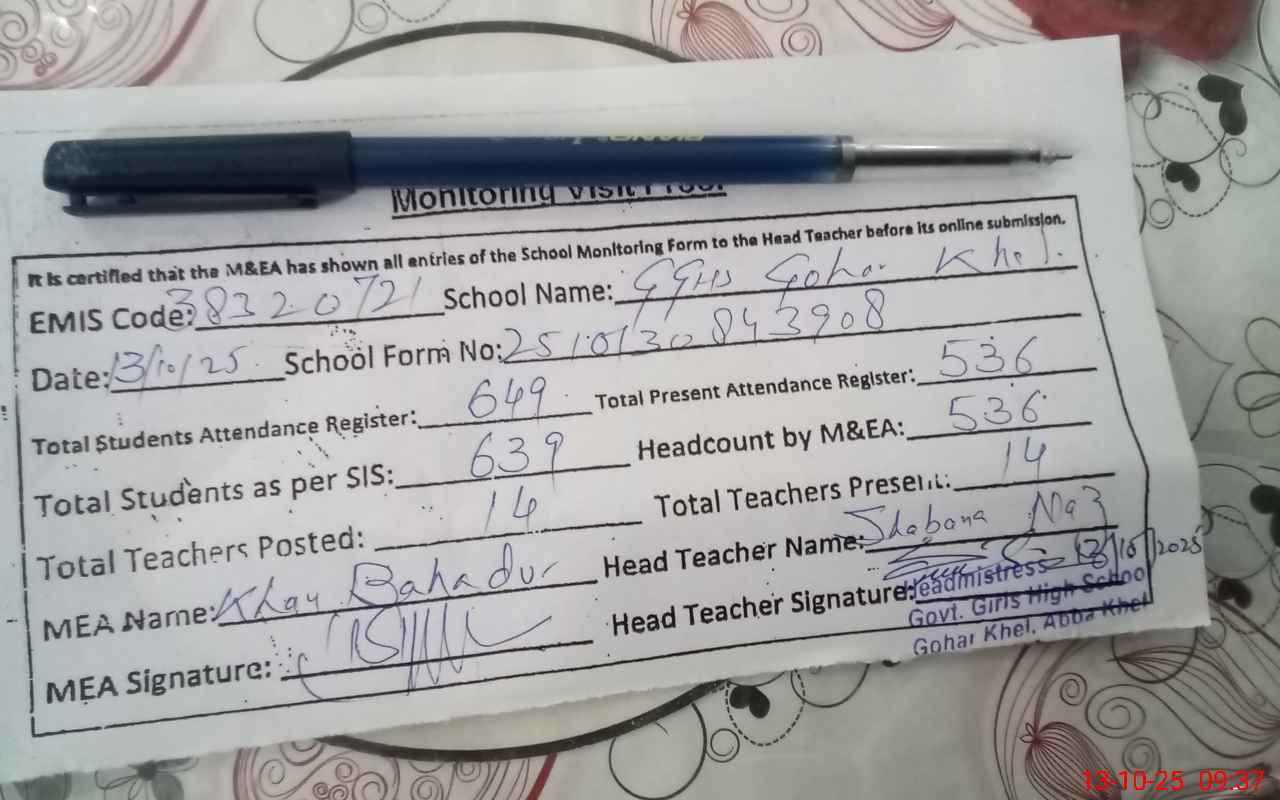 PIANO
Monitoring Visit Proof
It is certified that the M&EA has shown all entries of the School Monitoring Form to the Head Teacher before its online submission.
EMIS Code: 38320721 School Name: GGHS Gohar Khel.
Date: 13/10/25 School Form No: 2510130843908
Total Students Attendance Register: 649 Total Present Attendance Register: 536
Total Students as per SIS: 639 Headcount by M&EA: 536
Total Teachers Posted: 14 Total Teachers Present: 14
MEA Name: Khan Bahadur Head Teacher Name: Shabana Naz
MEA Signature: Head Teacher Signature: 13/10/2025
Headmistress
Govt. Girls High School
Gohar Khel, Abba Khel
13-10-25 09:37